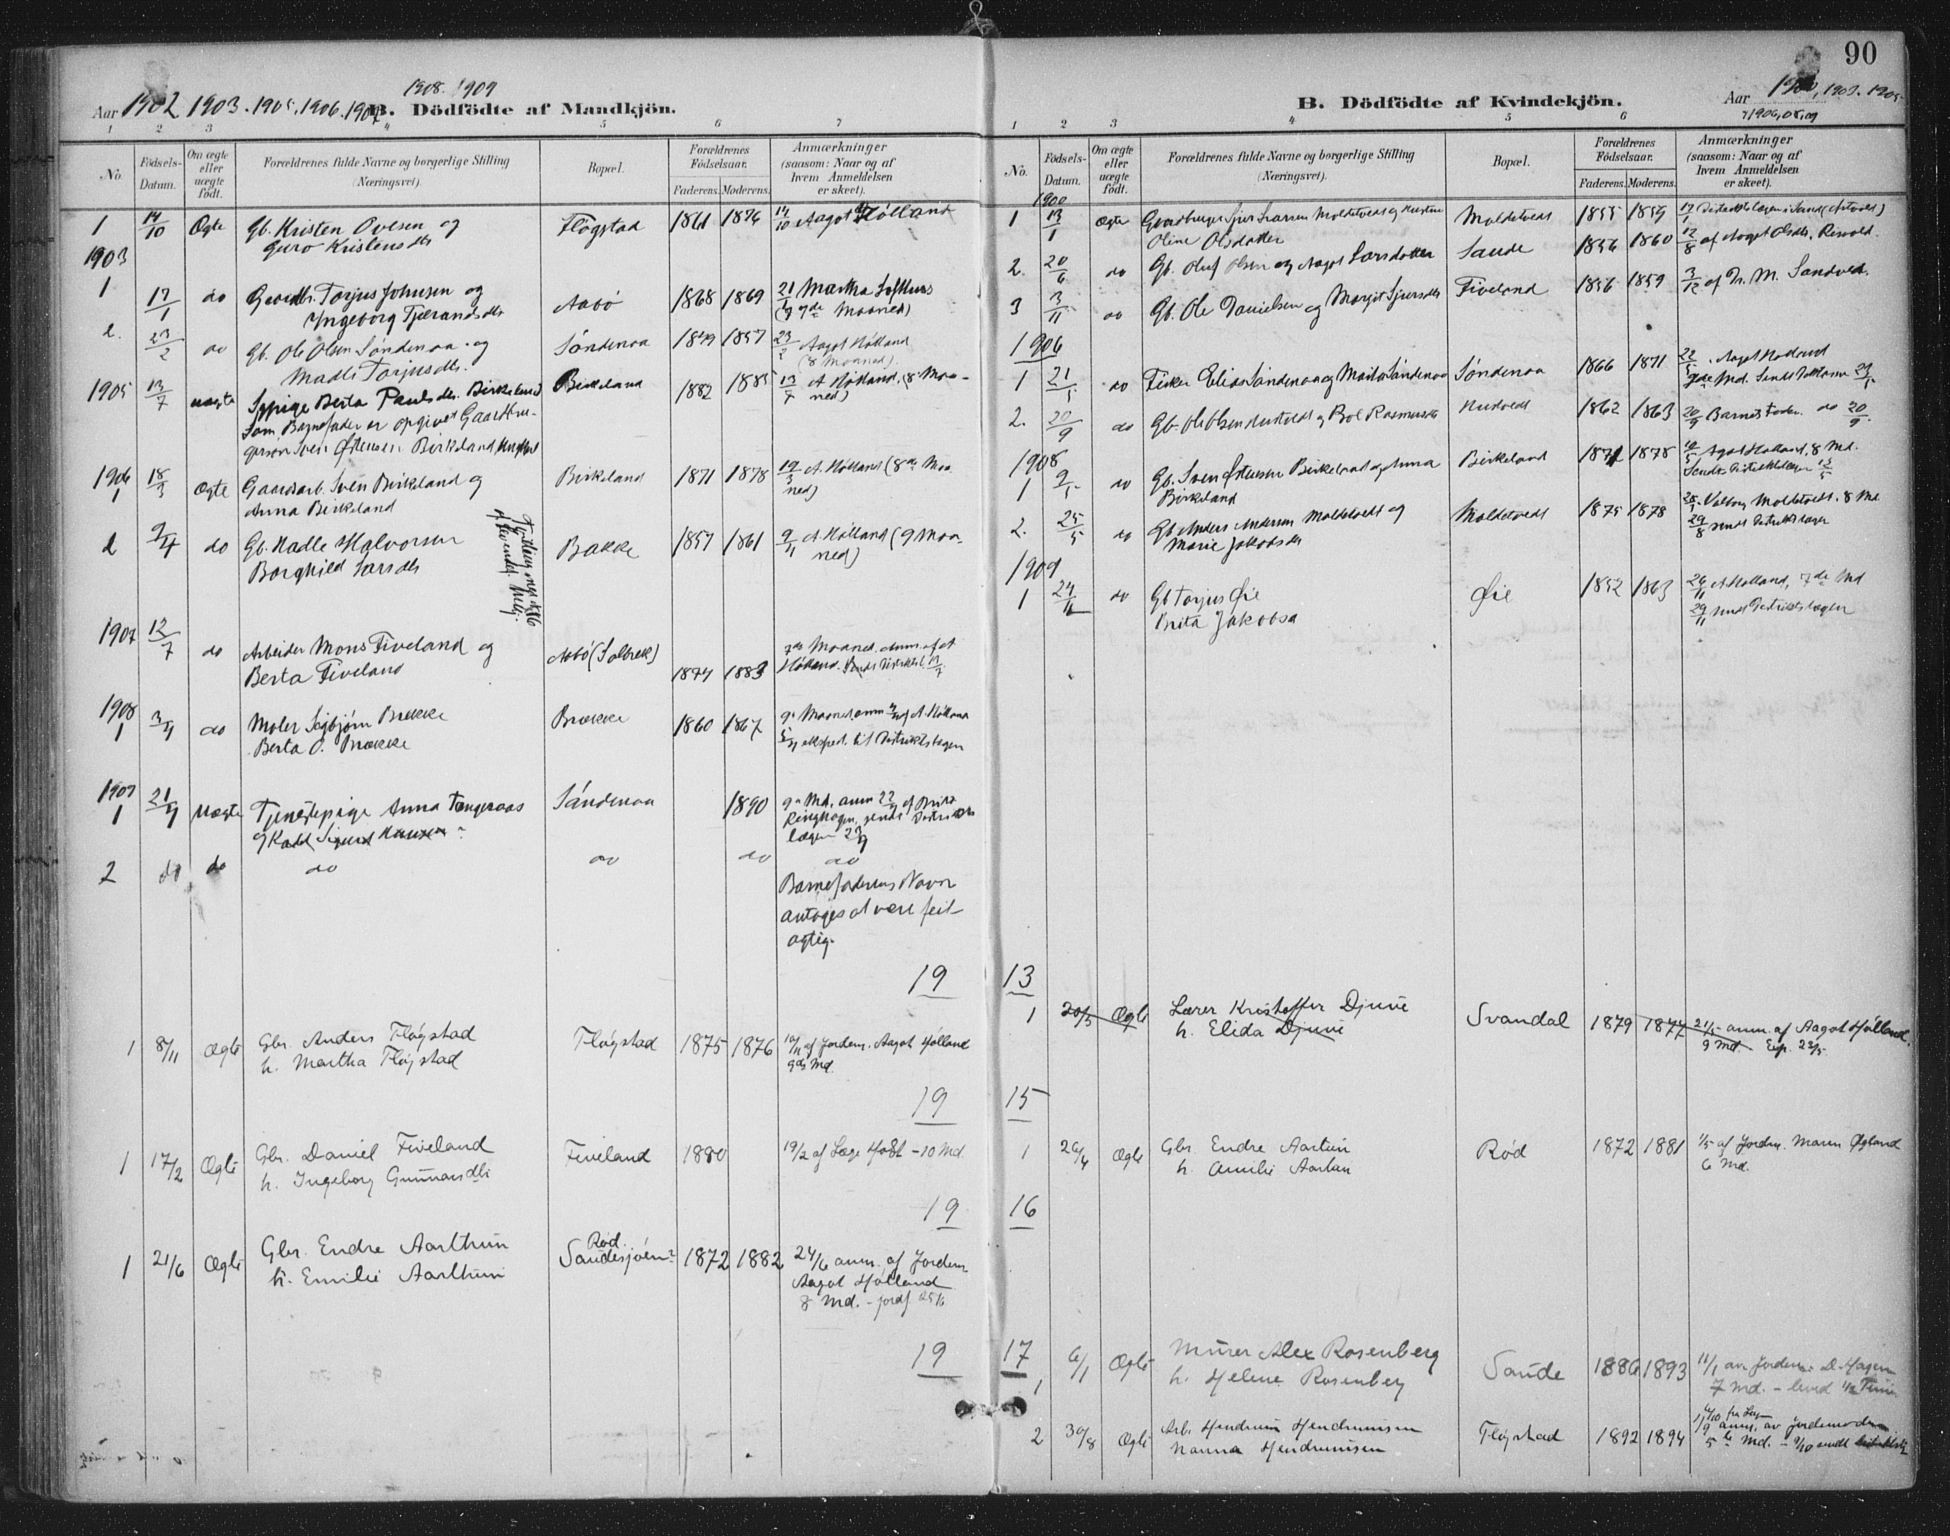 90
1908. 1909
Aar 1902 1903. 1905. 1906. 1907 B. Dödfödte af Mandkjön.
1 2 3 4 5 6 7
No. Födsels-Datum. Om ægte eller uægte födt. Forældrenes fulde Navne og borgerlige Stilling (Næringsvei). Bopæl. Forældrenes Födselsaar. Faderens. Moderens. Anmærkninger (saasom: Naar og af hvem Anmeldelsen er skeet).
1 14/10 Ægte Gb. Kristen Ovesen og Flögstad 1861 1876 14/10 Aagot Hólland
Guro Kristensdtr
1903
1 17/1 do Gaardbr. Torjus Johnsen og Aabö 1868 1869 21/1 Martha Lofthus
Yngeborg Tjerandsdtr (7de Maaned)
2. 23/2 do Gb. Ole Olsen Søndenaa og Söndenaa 1849 1857 23/2 Aagot Hólland
Madli Torjusdtr. (8 Maaned)
1905 13/7 uægte Pige Berta Paulsdtr. Birkeland Birkeland 1882 1885 13/7 A Hólland, (8 Maa-
Som Barnefader er opgivet ned)
Sven Østensen Birkeland
1906
1 18/3 Ægte Gaardarb. Sven Birkeland og Birkeland 1871 1878 19/3 A. Hólland (8de Maa
Anna Birkeland ned)
2 9/4 do Gb. Madle Halvorsen Bakke 1857 1861 9/4 A Hólland (9 Maa-
Borghild Larsdtr ned)
1907 12/7 do Arbeider Mons Fiveland og Aabö (Solbrek) 1874 1883 7de Maaned. Anm. af A
Berta Fiveland Hólland.
1908
1 3/4 do Maler Sigbjørn Brække Brække 1860 1867 9de Maaned, anm af A. Hólland
Berta O. Brække eksped. til Distriktslægen
1909
1 21/9 Uægte Tjenestepige Anna Tangeraas Söndenaa 1890 9de Md. anm 22/9 af Brita
og Kadet Sigurd Hansen Ringhagen, sendt Distrikts
lægen 23/9
2 do do do do do do
Barnefaderens Navn
antages at være feil-
agtig.
19
1 8/11 Ægte Gbr. Anders Flögstad Flögstad 1875 1876 10/11 af Jordem. Aagot Hólland
h. Martha Flögstad 9de Md.
19
1 17/2 Ægte Gbr. Daniel Fiveland Fiveland 1880 19/2 af Læge Holst - 10 Md.
h. Ingeborg Gunnarsdtr
19
1 21/6 Ægte Gbr. Endre Aarthun Rød. Saudesjøen? 1872 1882 24/6 anm. af Jordem
h. Emilie Aarthun Aagot Hólland
8 Md. - jordf 25/6
19
B. Dödfödte af Kvindekjön. Aar 1900, 1903. 1905
1906, 08, 09
1 2 3 4 5 6
No. Födsels-Datum. Om ægte eller uægte födt. Forældrenes fulde Navne og borgerlige Stilling (Næringsvei). Bopæl. Forældrenes Födselsaar. Faderens. Moderens. Anmærkninger (saasom: Naar og af hvem Anmeldelsen er skeet).
1900
1 13/1 Ægte Gaardbruger Sjur Larsen Moldetvedt og Hustru Moldetvedt 1855 1859
Oline Olsdatter
2. 20/6 do Gb. Oluf Olsen og Aagot Larsdatter Saude 1856 1860 12/8 af Aagot Olsdtr. Risvold
3 3/11 do Gb. Ole Danielsen og Margit Sjursdtr Fiveland 1856 1859 3/12 af Fr. M. Sandved
1906
1 21/5 do Fisker Elias Söndenaa og Marta Söndenaa Söndenaa 1866 1871 22/5 Aagot Hólland
7de Md. Sendt Doktoren 23/5
2. 20/9 do Gb. Ole Olsen Hustvedt og Bol Rasmusdtr Hustvedt 1862 1863 20/9 Barnets Fader. do 20/9
1908
1 9/5 do Gb. Sven Østensen Birkeland og Anna Birkeland 1871 1878 10/5 Agot Holland, 8 Md.
Birkeland Sendt Distriktslægen 13/5
2. 25/5 do Gb Anders Andersen Moldetvedt og Moldetvedt 1875 1878 Valborg Moldetvedt. 8 Md
Marie Jakobsdtr sendt Distriktslægen
1909
1 24/11 do Gb Torjus Øie Øie 1852 1863 26/11 A Holland, 7de Md
Brita Jakobsd 29/11 sendt Distriktslægen
13
1 20/5 Ægte Lærer Kristoffer Djuve Svandal 1879 1877 21/5 anm. af Aagot Hólland.
h. Elida Djuve 9 Md. Exp. 23/5
15
1 26/4 Ægte Gbr. Endre Aartun Rød 1872 1881 1/5 af Jordm. Maren Øgland
h. Amilie Aartun 6 Md.
16
17
1 6/1 Ægte Murer Alex Rosenberg Saude 1886 1893 11/1 av Jordem. D. Hagen
h. Helene Rosenberg 7 Md. - levd 1/2 Time
2 30/8 Ægte Arb. Hendrum Hendrumsen Flögstad 1892 1894 1/9 anm. av Jordemoder
Nanna Hendrumsen 5te Md. - 9/10 sendt